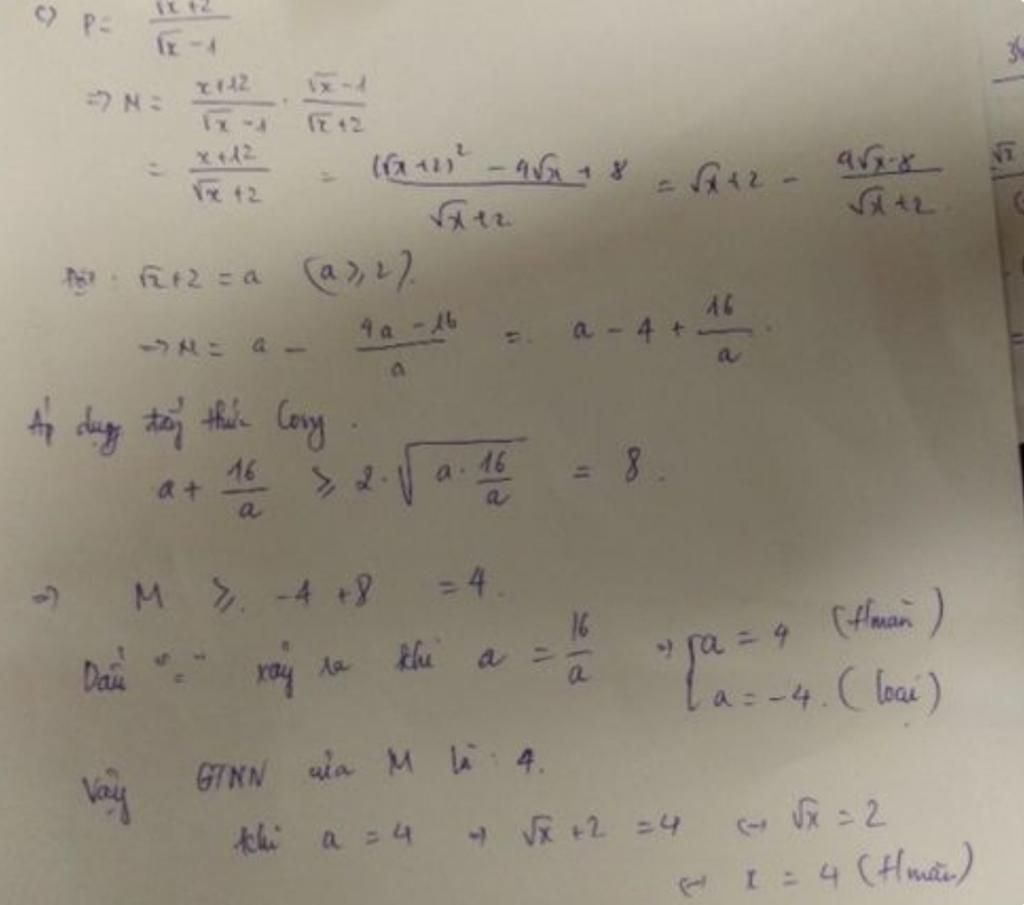 c) P = (√x+2)/(√x-1)
=> M = (x+12)/(√x-1) . (√x-1)/(√x+2)
= (x+12)/(√x+2) = ((√x+2)² - 4√x + 8)/(√x+2) = √x+2 - (4√x-8)/(√x+2).
Đặt : √x+2 = a (a ≥ 2).
-> M = a - (4a-16)/a = a - 4 + 16/a.
Áp dụng đẳng thức Cosy.
a + 16/a ≥ 2.√(a.16/a) = 8.
=> M ≥ -4 +8 = 4.
Dấu "=" xảy ra khi a = 16/a => [a = 4 (t/mãn)
a = -4. (loại)
Vậy GTNN của M là : 4.
khi a = 4 -> √x +2 = 4 <-> √x = 2
<-> x = 4 (t/mãn)